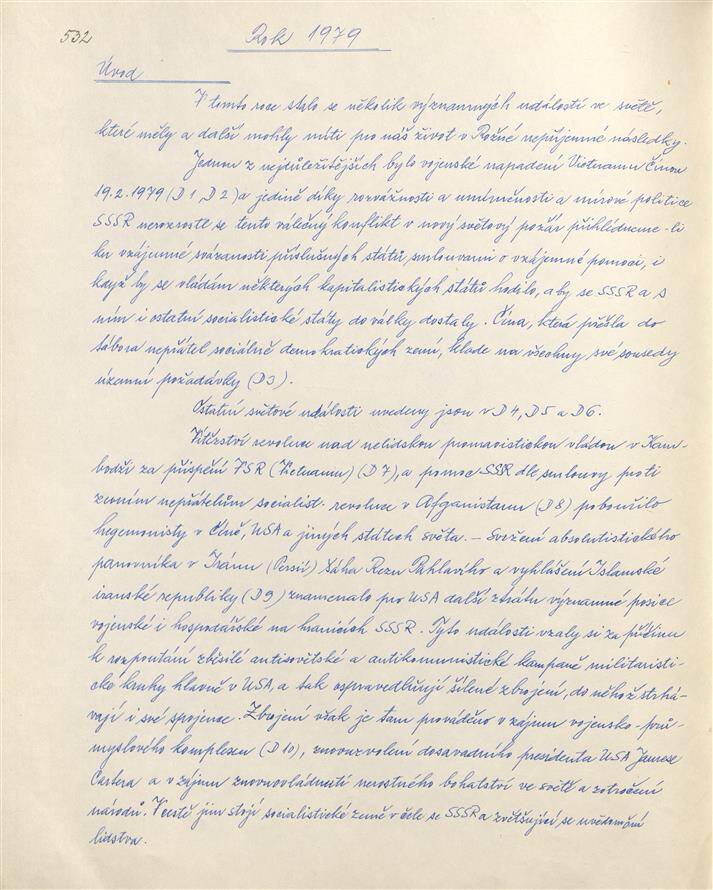 532
Rok 1979
Úvod
V tomto roce stalo se několik významných událostí ve světě,
které měly a další mohly míti pro náš život v Rožné nepříjemné následky.
Jednou z nejdůležitějších bylo vojenské napadení Vietnamu Čínou
19.2.1979 (D1, D2) a jedině díky rozvážnosti a umírněnosti a mírové politice
SSSR nerozrostl se tento válečný konflikt v nový světový požár přihlédneme-li
ku vzájemné svázanosti příslušných států smlouvami o vzájemné pomoci, i
když by se vládám některých kapitalistických států hodilo, aby se SSSR a s
ním i ostatní socialistické státy do války dostaly. Čína, která přešla do
tábora nepřátel sociálně demokratických zemí, klade na všechny své sousedy
územní požadavky (D3).
Ostatní světové události uvedeny jsou v D4, D5 a D6.
Vítězství revoluce nad nelidskou promaoistickou vládou v Kam-
bodži za přispění VSR (Vietnamu) (D7), a pomoc SSSR dle smlouvy proti
zevním nepřátelům socialist. revoluce v Afganistanu (D8) pobouřilo
hegemonisty v Číně, USA a jiných státech světa. – Svržení absolutistického
panovníka v Iránu (Persii) šáha Rezu Pahlavího a vyhlášení Islamské
iranské republiky (D9) znamenalo pro USA další ztrátu významné posice
vojenské i hospodářské na hranicích SSSR. Tyto události vzaly si za příčinu
k rozpoutání zběsilé antisovětské a antikomunistické kampaně militaristi-
cké kruhy hlavně v USA, a tak ospravedlňují šílené zbrojení, do něhož strhá-
vají i své spojence. Zbrojení však je tam prováděno v zájmu vojensko-prů-
myslového komplexu (D10), znovuzvolení dosavadního presidenta USA Jamese
Cartera a v zájmu znovuovládnutí nerostného bohatství ve světě a zotročení
národů. V cestě jim stojí socialistické země v čele se SSSR a zvětšující se uvědomění
lidstva.